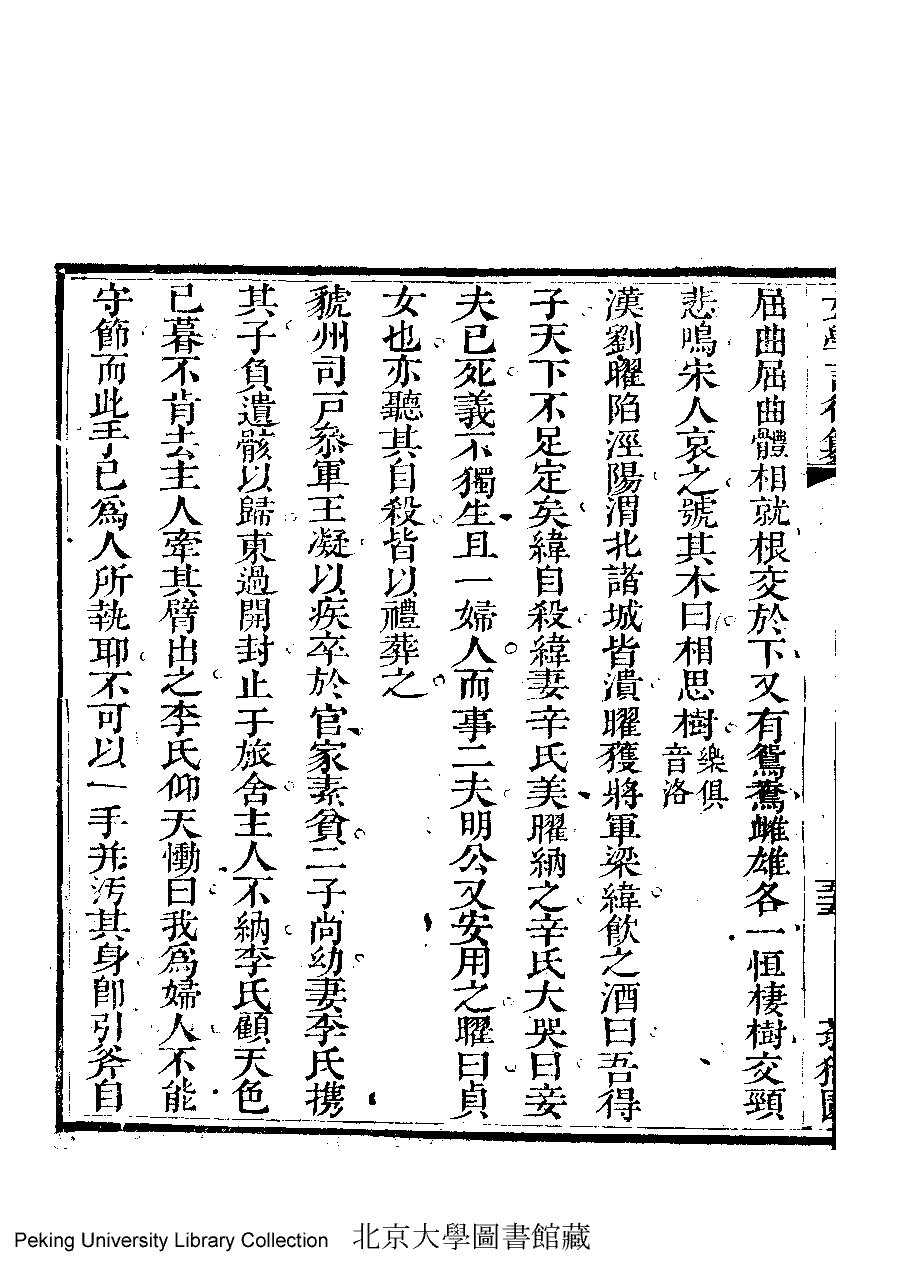 屈曲屈曲體相就根交於下又有鴛鴦雌雄各一恒棲樹交頸
悲鳴宋人哀之號其木曰相思樹樂俱音洛
漢劉曜陷涇陽渭北諸城皆潰曜獲將軍梁緯飲之酒曰吾得
子天下不足定矣緯自殺緯妻辛氏美曜納之辛氏大哭曰妾
夫已死義不獨生且一婦人而事二夫明公又安用之曜曰貞
女也亦聽其自殺皆以禮葬之
虢州司戸叅軍王凝以疾卒於官家素貧二子尚幼妻李氏携
其子負遺骸以歸東過開封止于旅舍主人不納李氏顧天色
已暮不肯去主人牽其臂出之李氏仰天慟曰我爲婦人不能
守節而此手已爲人所執耶不可以一手并汚其身卽引斧自
Peking University Library Collection 北京大學圖書館藏